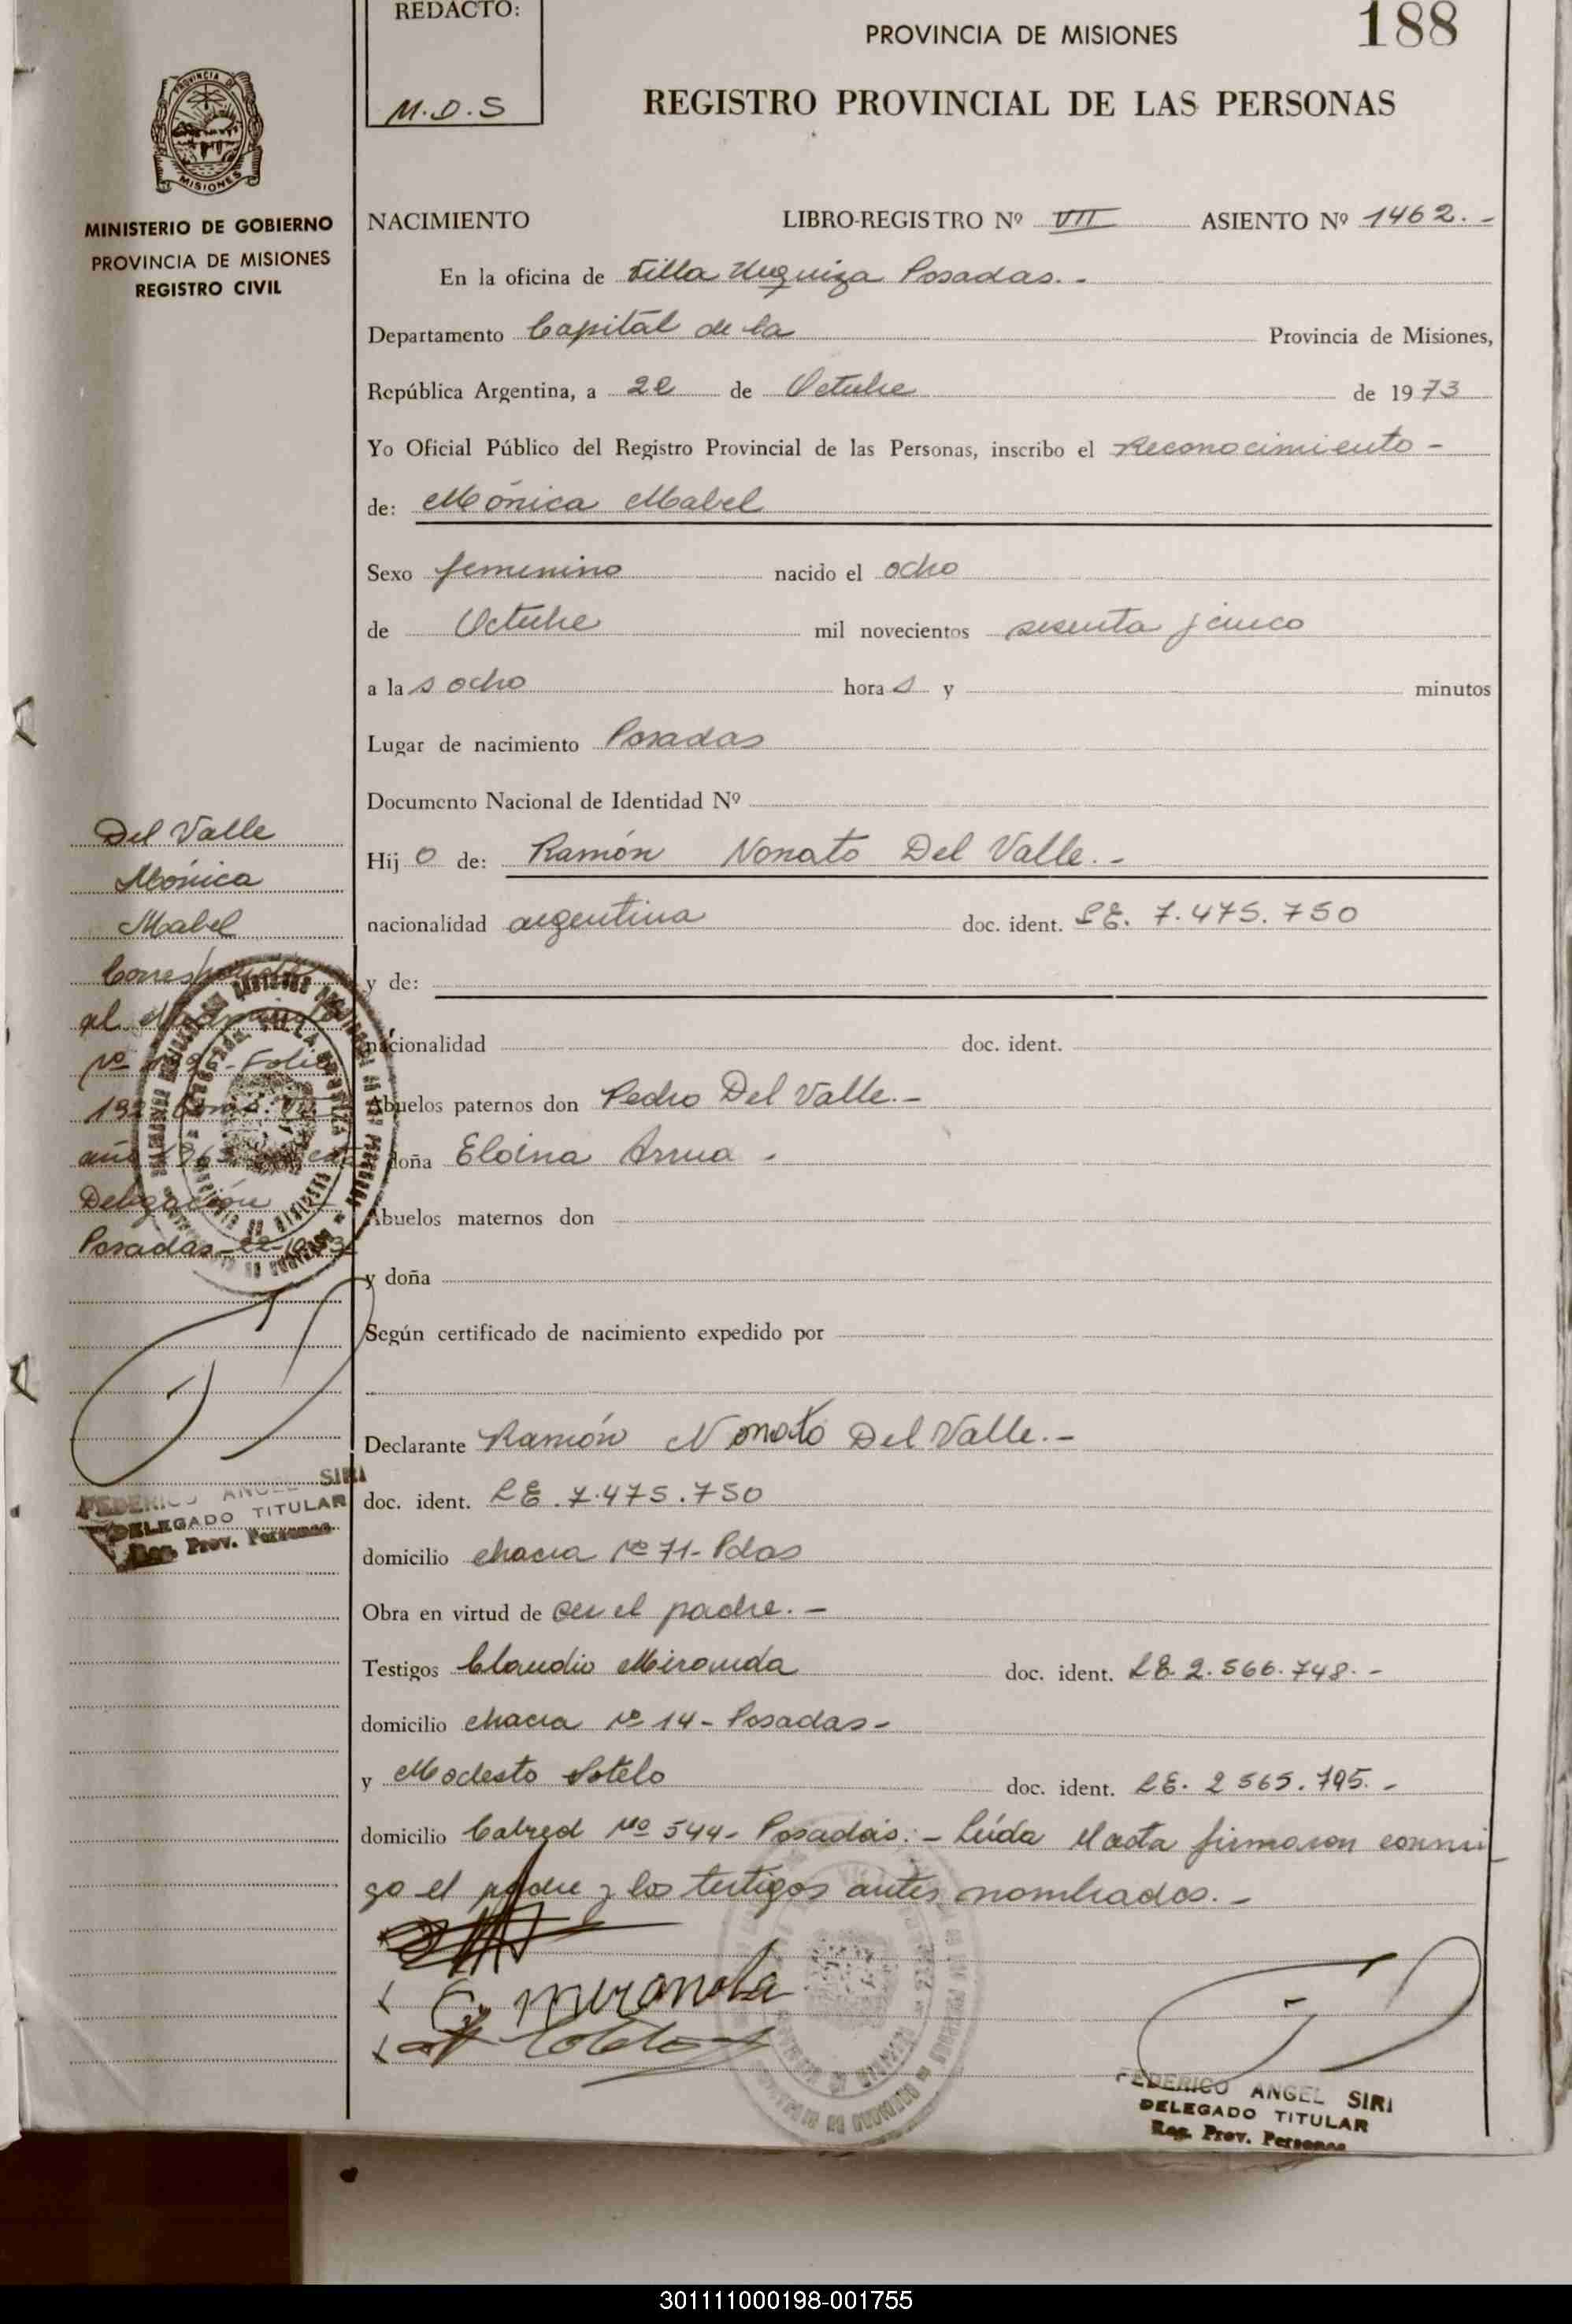 REDACTO:
M.D.S
PROVINCIA DE MISIONES
188
REGISTRO PROVINCIAL DE LAS PERSONAS
PROVINCIA DE
MISIONES
MINISTERIO DE GOBIERNO
PROVINCIA DE MISIONES
REGISTRO CIVIL
NACIMIENTO LIBRO-REGISTRO Nº VII ASIENTO Nº 1462.-
En la oficina de Villa Urquiza Posadas.-
Departamento Capital de la Provincia de Misiones,
República Argentina, a 22 de Octubre de 1973
Yo Oficial Público del Registro Provincial de las Personas, inscribo el Reconocimiento-
de: Mónica Mabel
Sexo femenino nacido el ocho
de Octubre mil novecientos sesenta y cinco
a las ocho horas y minutos
Lugar de nacimiento Posadas
Documento Nacional de Identidad Nº
Hijo de: Ramón Nonato Del Valle.-
nacionalidad argentina doc. ident. LE. 7.475.750
y de:
nacionalidad doc. ident.
Abuelos paternos don Pedro Del Valle.-
doña Eloina
Abuelos maternos don
y doña
Según certificado de nacimiento expedido por
Declarante Ramón Nonato Del Valle.-
doc. ident. LE.7.475.750
domicilio chacra Nº 71- Pdas
Obra en virtud de ser el padre.-
Testigos Claudio Miranda doc. ident. LE.2.566.748.-
domicilio chacra Nº 14- Posadas-
y Modesto Sotelo doc. ident. LE. 2 565.795.-
domicilio Cabred Nº 544- Posadas.- Leída el acta firmaron conmi
go el padre y los testigos antes nombrados.-
C. Miranda
Del Valle
Mónica
Mabel
Corresponde
al
Nº Folio
año
Delegación
Posadas-22-10-73
FEDERICO ANGEL SIRI
DELEGADO TITULAR
Reg. Prov. Personas
FEDERICO ANGEL SIRI
DELEGADO TITULAR
Reg. Prov. Personas
301111000198-001755